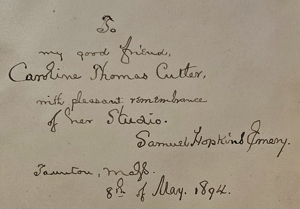 To
my good friend,
Caroline Thomas Cutter,
with pleasant remembrance
of her Studio.
Samuel Hopkins Emery.
Taunton, Mass.
8th of May. 1894.